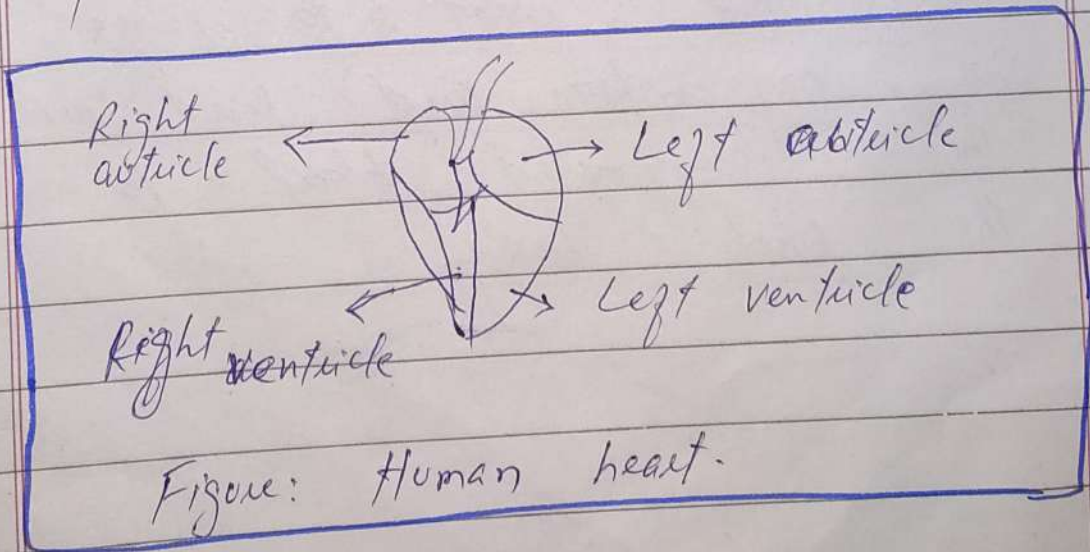 Right
auticle
Left auticle
Left ventricle
Right ventricle
Figure: Human heart.